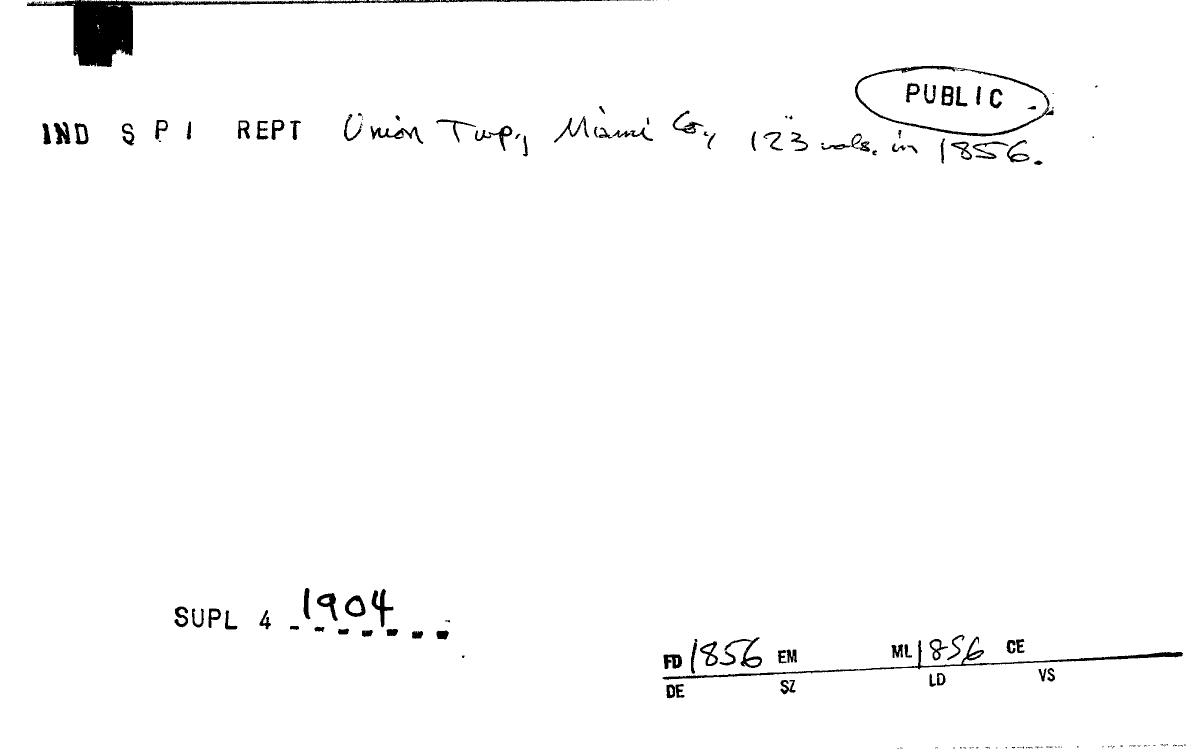 PUBLIC
IND S P I REPT Union Twp., Miami Co., 123 vols. in 1856.
SUPL 4 1904
FD 1856 EM ML 1856 CE
DE SZ LD VS